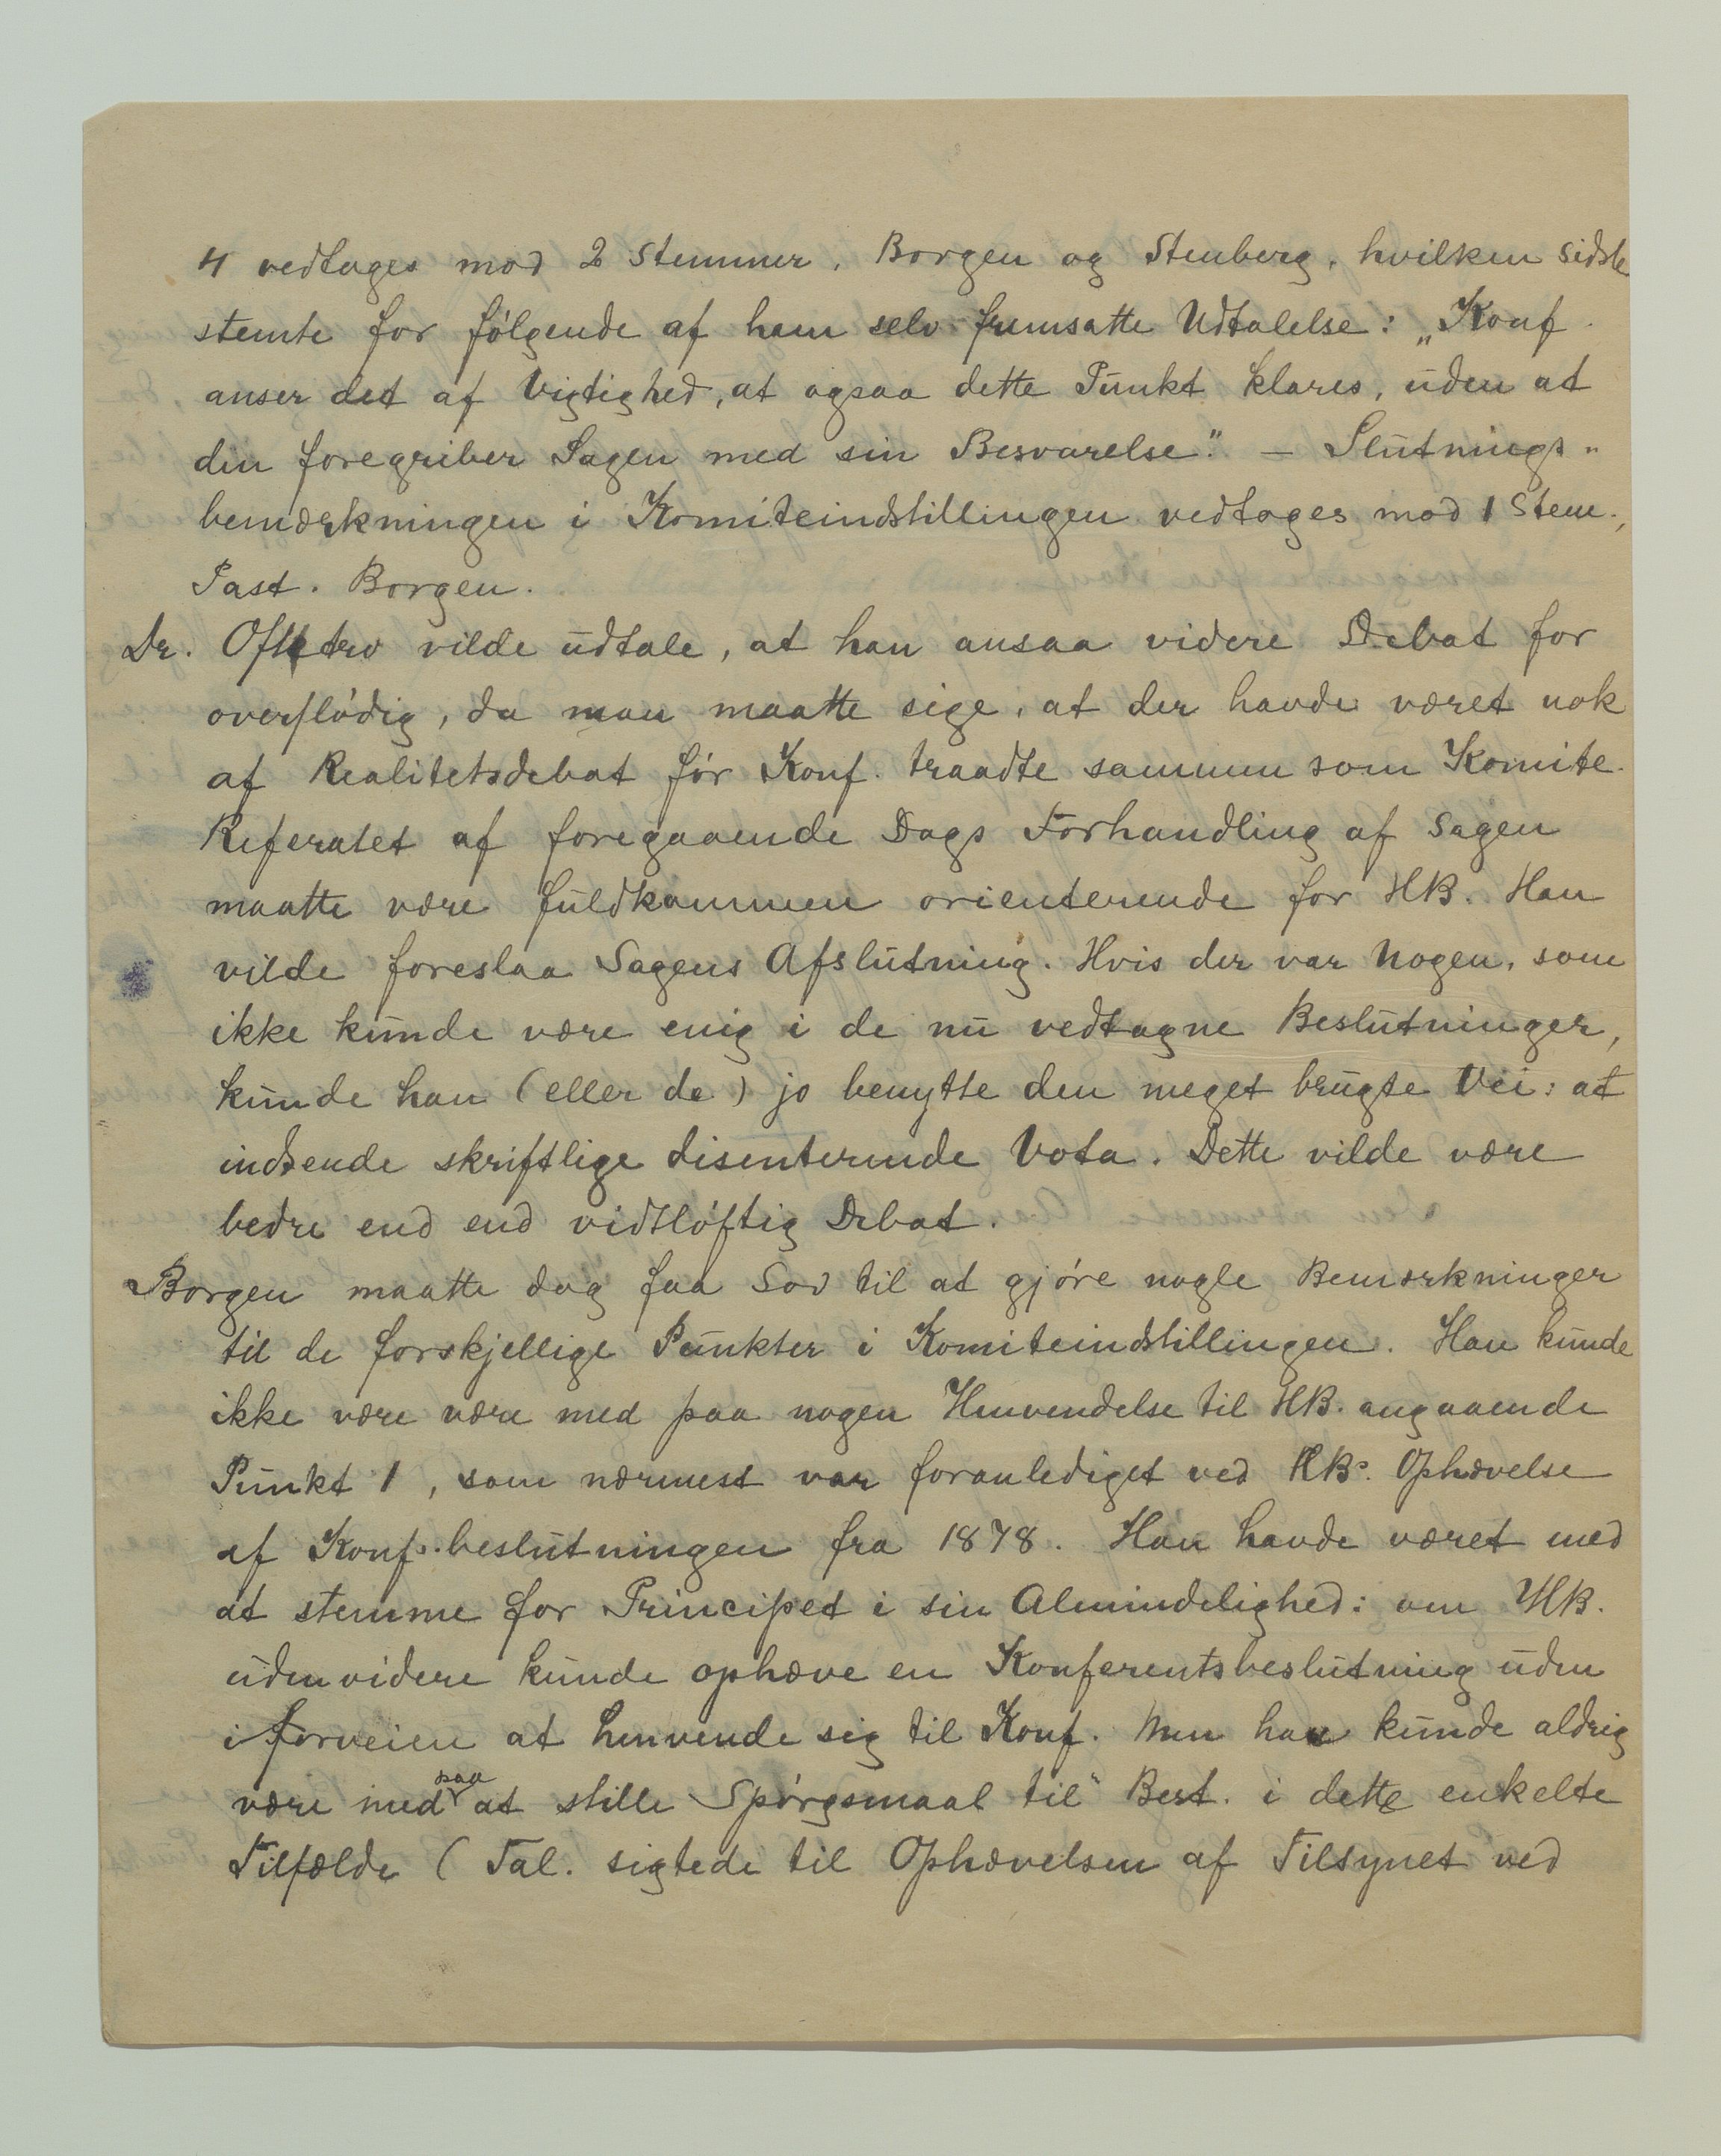 4 vedtages mod 2 Stemmer, Borgen og Stenberg, hvilken sidste
stemte for følgende af ham selv fremsatte Udtalelse: „Konf.
anser det af Vigtighed, at ogsaa dette Punkt klares, uden at
den foregriber Sagen med sin Besvarelse." – Slutnings-
bemærkningen i Komiteindstillingen vedtoges mod 1 Stem.,
Past. Borgen.
Dr. Oftetro vilde udtale, at han ansaa videre Debat for
overflødig, da man maatte sige, at der havde været nok
af Realitetsdebat før Konf. traadte sammen som Komite.
Referatet af foregaaende Dags Forhandling af Sagen
maatte være fuldkommen orienterende for HB. Han
vilde foreslaa Sagens Afslutning. Hvis der var Nogen, som
ikke kunde være enig i de nu vedtagne Beslutninger,
kunde han (eller de) jo benytte den meget brugte Vei: at
indsende skriftlige disenterende Vota. Dette vilde være
bedre end end vidtløftig Debat.
Borgen maatte dog faa Lov til at gjøre nogle Bemærkninger
til de forskjellige Punkter i Komiteindstillingen. Han kunde
ikke være være med paa nogen Henvendelse til HB. angaaende
Punkt 1, som nærmest var foranlediget ved HBs. Ophævelse
af Konfs.beslutningen fra 1878. Han havde været med
at stemme for Principet i sin Almindelighed: om HB.
uden videre kunde ophæve en Konferentsbeslutning uden
i forveien at henvende sig til Konf. Men han kunde aldrig
være med paa at stille Spørgsmaal til Best. i dette enkelte
Tilfælde (Tal. sigtede til Ophævelsen af Tilsynet ved